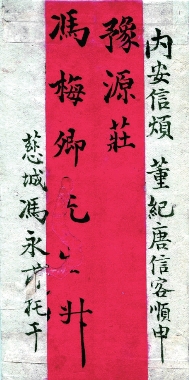 内安信煩 董紀唐信客順申
豫源莊
馮梅卿先生升
慈城馮永托干